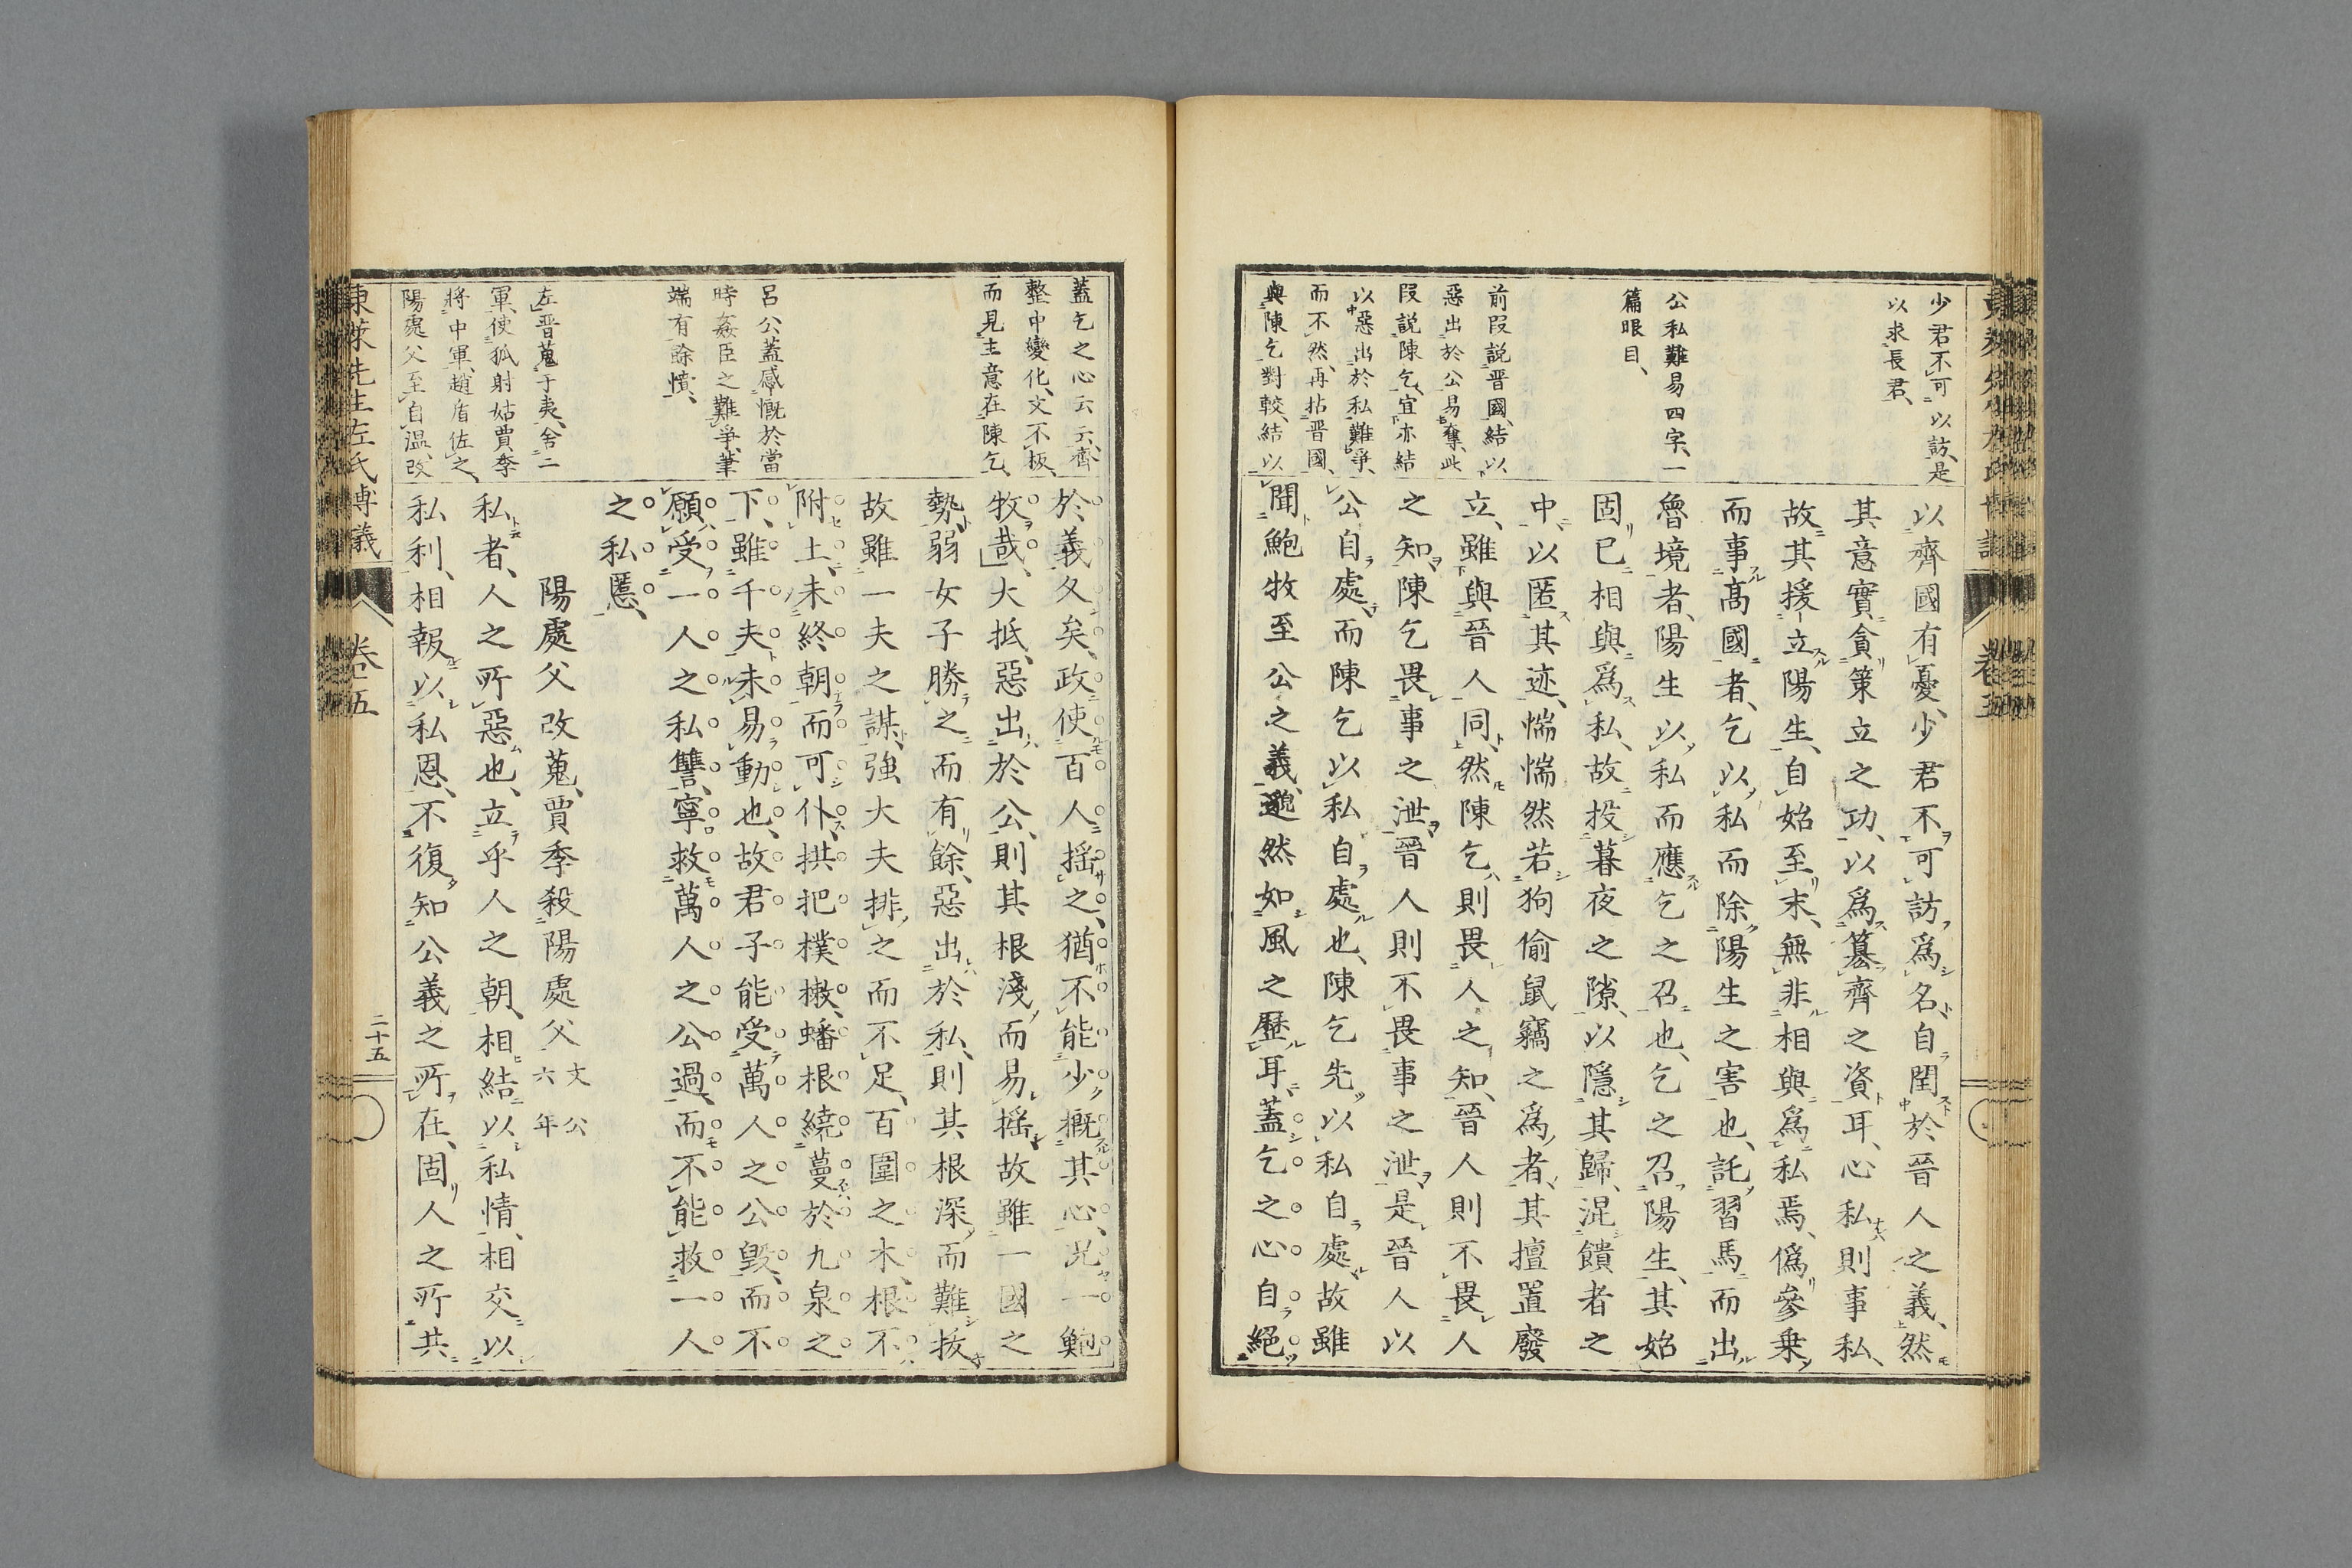 少君不可以訪、是
以求長君、
公私難易四字、一
篇眼目、
前段説晋國、結以
惡出於公易奪、此
段説陳乞、宜亦結
以惡出於私難爭、
而不然、再拈晋國、
與陳乞對較、結以
以齊國有憂、少君不可訪爲名、自閏於晉人之義、然
其意實貪策立之功、以爲簒齊之資耳、心私則事私、
故其援立陽生、自始至末、無非相與爲私焉、僞參乗
而事髙國者、乞以私而除陽生之害也、託習馬而出
魯境者、陽生以私而應乞之召也、乞之召陽生、其始
固已相與爲私、故投暮夜之隙、以隱其歸、混饋者之
中、以匿其迹、惴惴然若狗偷鼠竊之爲者、其擅置廢
立、雖與晉人同、然陳乞則畏人之知、晉人則不畏人
之知、陳乞畏事之泄、晉人則不畏事之泄、是晉人以
公自處、而陳乞以私自處也、陳乞先以私自處、故雖
聞鮑牧至公之義、邈然如風之歴耳、蓋乞之心自絕
東萊先生左氏博議
卷五
蓋乞之心云云、齊
整中變化、文不板、
而見主意在陳乞、
呂公蓋感慨於當
時姦臣之難爭、筆
端有餘憤、
左、晋蒐于夷、舍二
軍、使狐射姑賈季
將中軍、趙盾佐之、
陽處父至自温、改
於義久矣、政使百人揺之、猶不能少概其心、況一鮑
牧哉、大抵、惡出於公、則其根淺而易揺、故雖一國之
勢、弱女子勝之而有餘、惡出於私、則其根深而難拔、
故雖一夫之謀、強大夫排之而不足、百圍之木、根不
附土、未終朝而可仆、拱把樸樕、蟠根繞蔓於九泉之
下、雖千夫未易動也、故君子能受萬人之公毀、而不
願受一人之私讐、寧救萬人之公過、而不能救一人
之私慝、
陽處父改蒐、賈季殺陽處父 文公六年
私者、人之所惡也、立乎人之朝、相結以私情、相交以
私利、相報以私恩、不復知公義之所在、固人之所共
東萊先生左氏博議
卷五
二十五